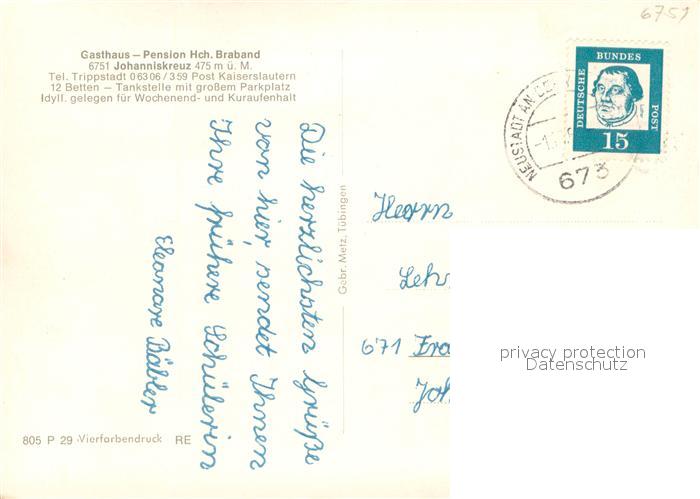 6751
Gasthaus – Pension Hch. Braband
6751 Johanniskreuz 475 m ü. M.
Tel. Trippstadt 06306/359 Post Kaiserslautern
12 Betten – Tankstelle mit großem Parkplatz
Idyll. gelegen für Wochenend- und Kuraufenhalt
Die herzlichsten Grüße
von hier, sendet Ihnen
Ihre frühere Schülerin
Eleonore Bäbler
Gebr. Metz, Tübingen
DEUTSCHE
BUNDES
POST
15
NEUSTADT AN DER
673
Herrn
Leh
671 Fra
Joh
privacy protection
Datenschutz
805 P 29 Vierfarbendruck RE